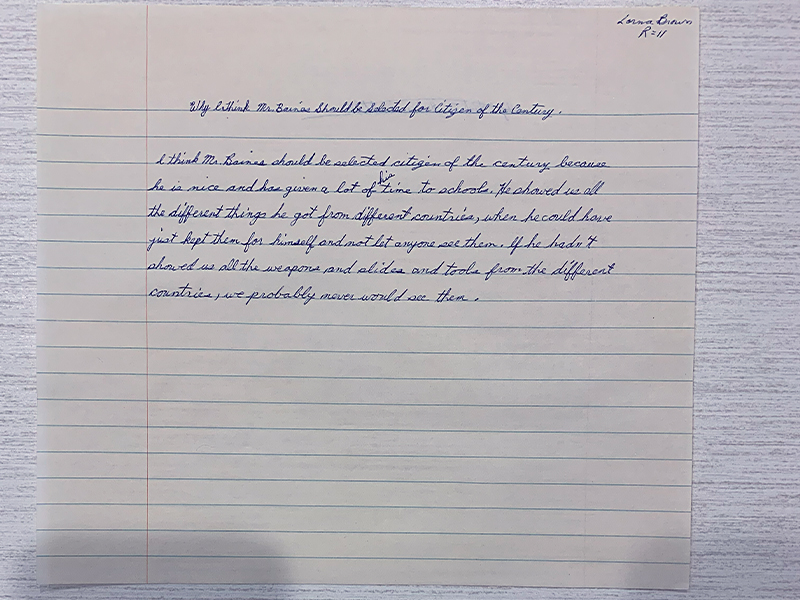 Lorna Brown
R=11
Why I think Mr. Baines Should be Selected for Citizen of the Century.
I think Mr. Baines should be selected citizen of the century because
he is nice and has given a lot of his time to schools. He showed us all
the different things he got from different countries, when he could have
just kept them for himself and not let anyone see them. If he hadn't
showed us all the weapons and slides and tools from the different
countries, we probably never would see them.